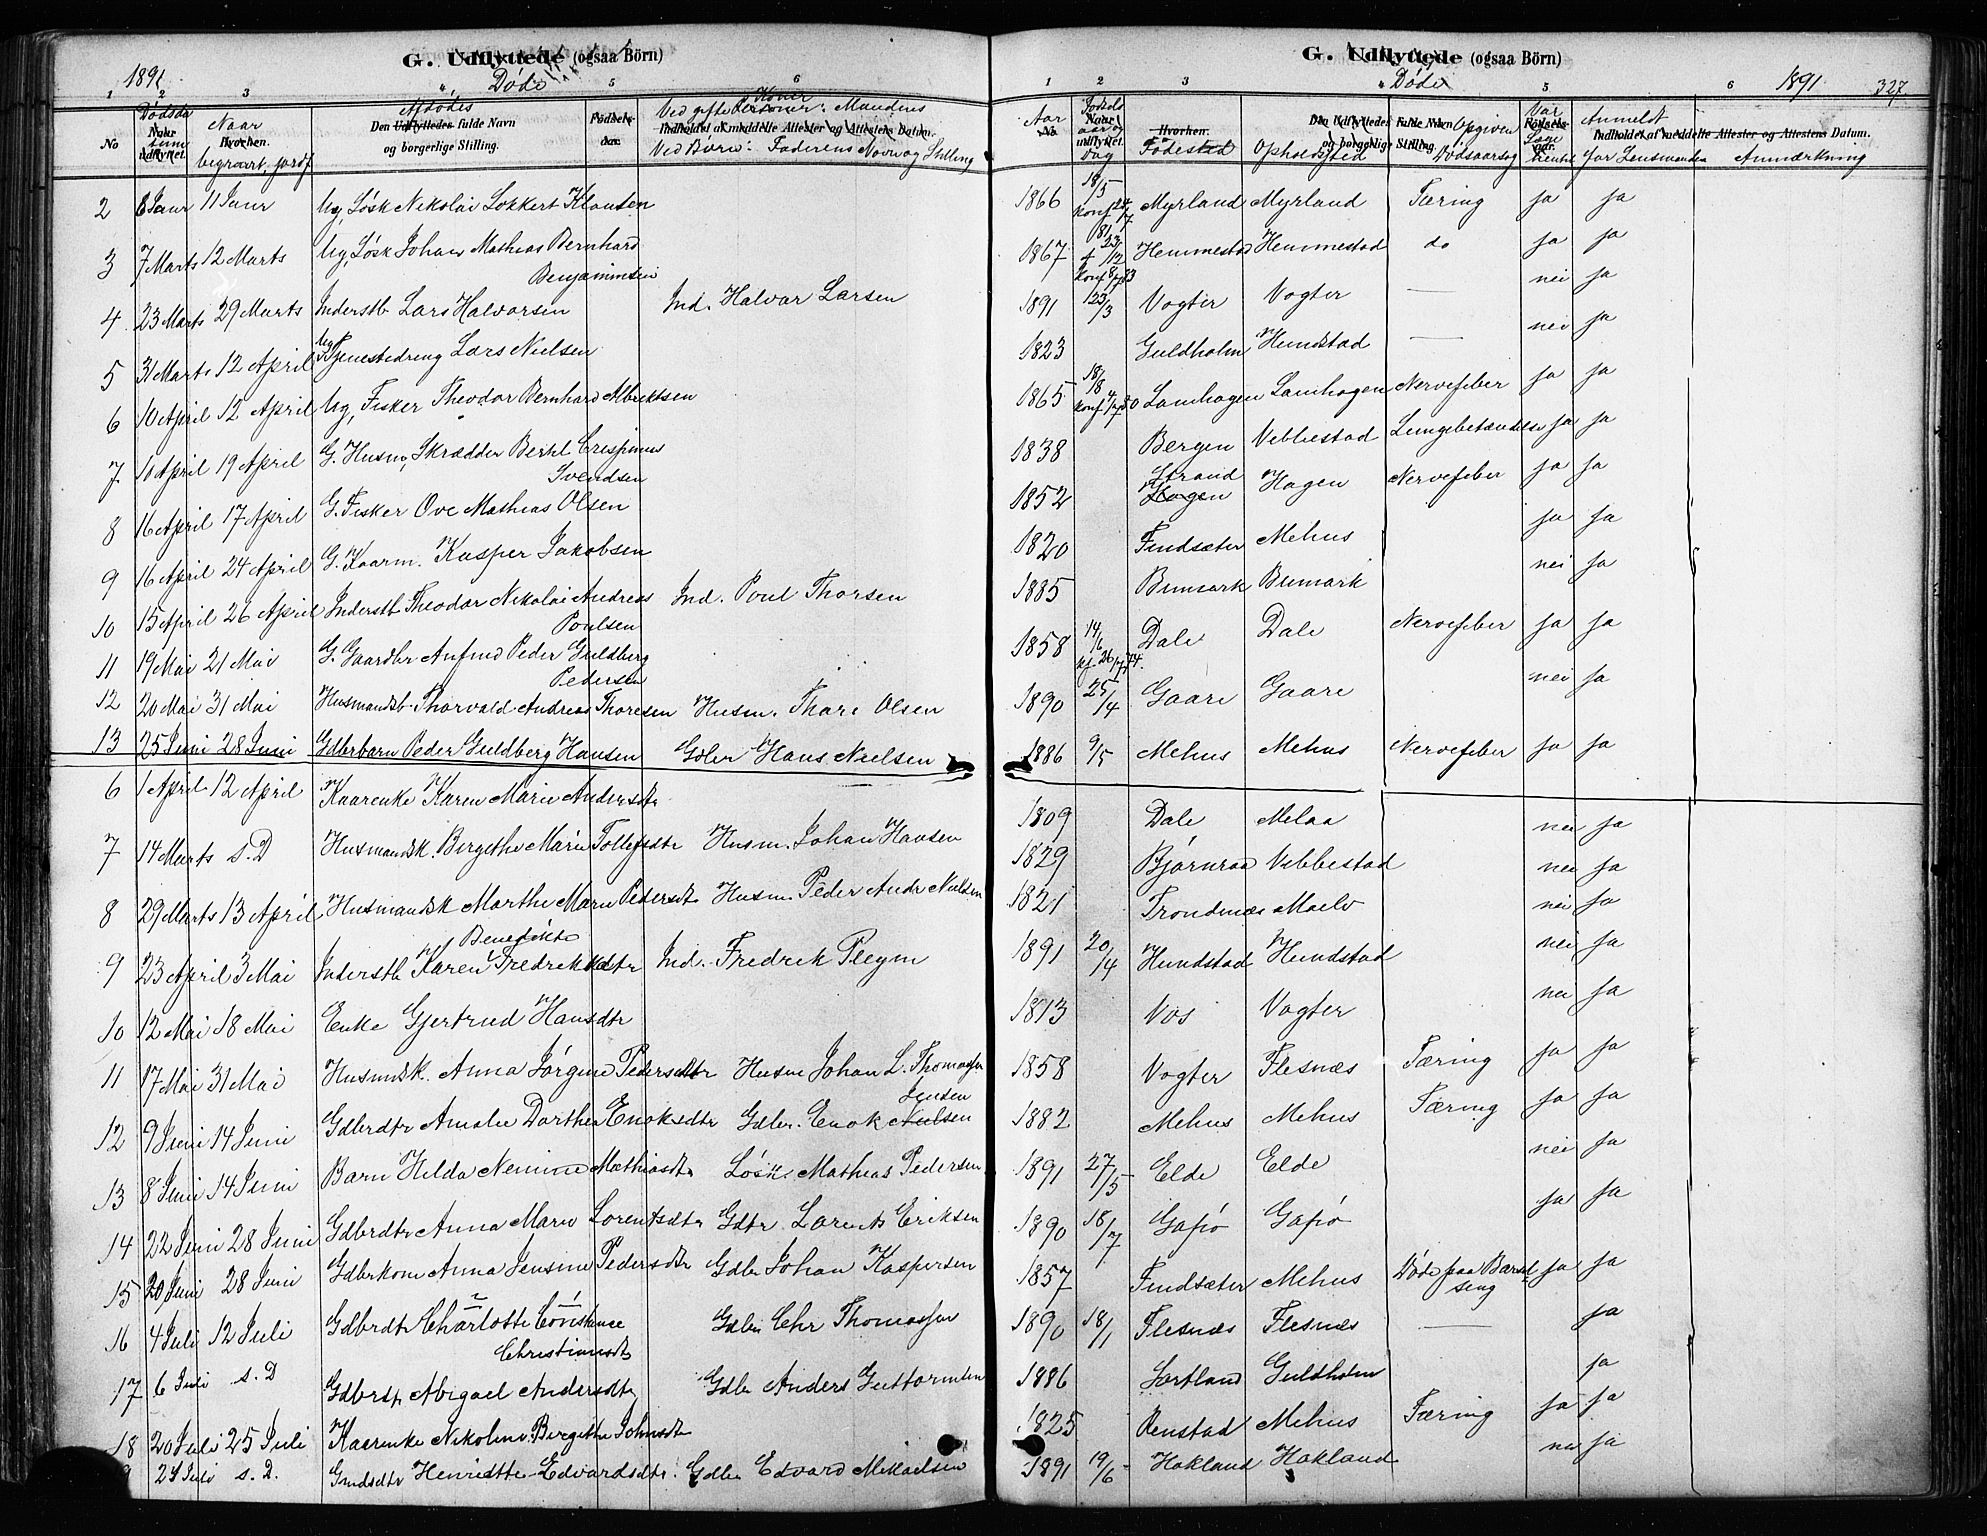 G. Udflyttede (ogsaa Börn)
1891. Døde
1 2 3 4 5 6
No
Dødsdatum
Naar udflyttet.
Naar begravet, jordf.
Hvorhen.
Afdødes
Den Udflyttedes fulde Navn
og borgerlige Stilling.
Födsels-
Ved gifte Koner: Mandens
Indholdet af meddelte Attester og Attestens Datum.
Ved Børn: Faderens Navn og Stilling
2 8 Janr 11 Janr Ug, Løsk Nikolai Lokkert Klausen
3 7 Marts 12 Marts Ug, Løsk Johan Mathias Bernhard
Benjaminsen
4 23 Marts 29 Marts Inderstb Lars Halvorsen Ind. Halvar Larsen
5 31 Marts 12 April Ug Tjenestedreng Lars Nielsen
6 10 April 12 April Ug, Fisker Theodor Bernhard Albriktsen
7 10 April 19 April G. Husm, Skrædder Bertel Crispinus
Svendsen
8 16 April 17 April G. Fisker Ove Mathias Olsen
9 16 April 24 April G. Kaarm. Kasper Jakobsen
10 15 April 26 April Inderstb Theodor Nikolai Andreas Ind. Poul Thorsen
Poulsen
11 19 Mai 21 Mai G. Gaardbr Anfind Peder Guldberg
Pedersen
12 20 Mai 31 Mai Husmandsb. Thorvald Andreas Thoresen Husm. Thore Olsen
13 25 Juni 28 Juni Gdbrbarn Peder Guldberg Hansen Gdbr Hans Nielsen
6 1 April 12 April Kaarenke Karen Marie Andersdtr
7 14 Marts s. D Husmandsk. Bergethe Marie Tollefsdtr Husm. Johan Hansen
8 29 Marts 13 April Husmandsk Marthe Marie Pedersdtr Husm. Peder Andr Nielsen
Benedikte
9 23 April 3 Mai Inderstb Karen Fredriksdtr Ind. Fredrik Pleym
10 12 Mai 18 Mai Enke Gjertrud Hansdtr
11 17 Mai 31 Mai Husmdsk. Anna Jørgine Pedersdtr Husm Johan L. Thomassen
Jensen
12 9 Juni 14 Juni Gdbrdtr Amalie Dorthea Enoksdtr Gdbr. Enok Nielsen
13 8 Juni 14 Juni Barn Hilda Nemine Mathiasdtr Løsk. Mathias Pedersen
14 22 Juni 28 Juni Gdbrdtr Anna Marie Lorentsdtr Gdbr. Lorents Eriksen
15 20 Juni 28 Juni Gdbrkone Anna Jensine Pedersdtr Gdbr Johan Kaspersen
16 4 Juli 12 Juli Gdbrdtr Charlotte Constanse Gdbr Chr Thomassen
Christiansdtr
17 6 Juli s. D Gdbrdtr Abigael Andersdtr Gdbr Anders Guttormsen
18 20 Juli 25 Juli Kaarenke Nikoline Bergitte Johnsdtr
21 Juli s. D. Henriette Edvardsdtr. Gdbr Edvard Mikaelsen
G. Udflyttede (ogsaa Börn)
Døde 1891. 327
1 2 3 4 5 6
Aar
No
Fødselsaar og Dag
Naar udflyttet.
Hvorhen.
Fødested
Den Udflyttedes fulde Navn
og borgerlige Stilling.
Opholdssted
Opgiven Dødsaarsag
Var Læge
Födsels-
Anmeldt for Lensmanden
Indholdet af meddelte Attester og Attestens Datum.
Anmærkning
1866 18/5 Konf 24/7 81 Myrland Myrland Tæring ja ja
1867 + 23/12 Konf 8/7 83 Hemmestad Hemmestad do ja ja
1891 23/3 Vogter Vogter — nei ja
1823 Guldholm Hundstad — nei ja
1865 18/8 Konf 4/7 80 Lamhagen Lamhagen Nervefeber ja ja
1838 Bergen Vebbestad Lungebetændelse ja ja
Strand
1852 Hagen Hagen Nervefeber ja ja
1820 Findsæter Mehus ja ja
1885 Bumark Bumark nei ja
1858 14/6 kf. 26/7 74. Dale Dale Nervefeber ja ja
1890 25/4 Gaare Gaare nei ja
1886 9/5 Mehus Mehus Nervefeber ja ja
1809 Dale Melaa nei ja
1829 Bjørnraa Vebbestad nei ja
1821 Trondenæs Maelv nei ja
1891 20/4 Hundstad Hundstad nei ja
1813 Vos Vogter nei ja
1858 Vogter Flesnæs Tæring ja ja
1882 Mehus Mehus Tæring ja ja
1891 27/5 Elde Elde nei ja
1890 18/7 Gapø Gapø ja ja
1857 Findsæter Mehus Døde paa Barsel ja ja
seng
1890 18/1 Flesnæs Flesnæs — ja
1886 Sortland Guldholm ja
1825 Renstad Mehus Tæring ja ja
1891 19/6 Hokland Hokland nei ja